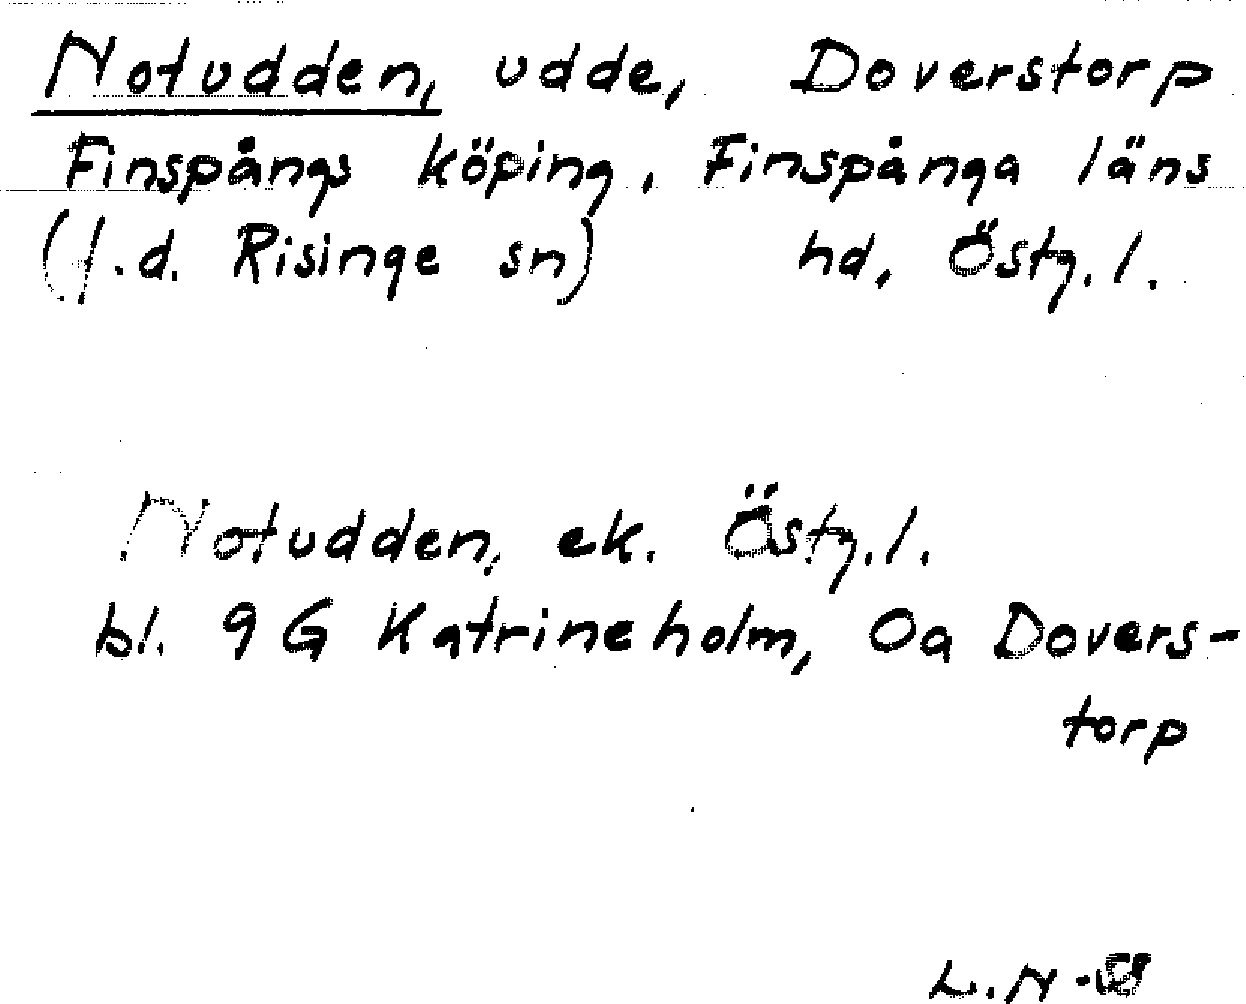 Notudden, udde, Doverstorp
Finspångs köping, Finspånga läns
(f.d. Risinge sn) hd, Östg.l.
Notudden, ek. Östg.l.
bl. 9G Katrineholm, 0a Dovers-
torp
L.N